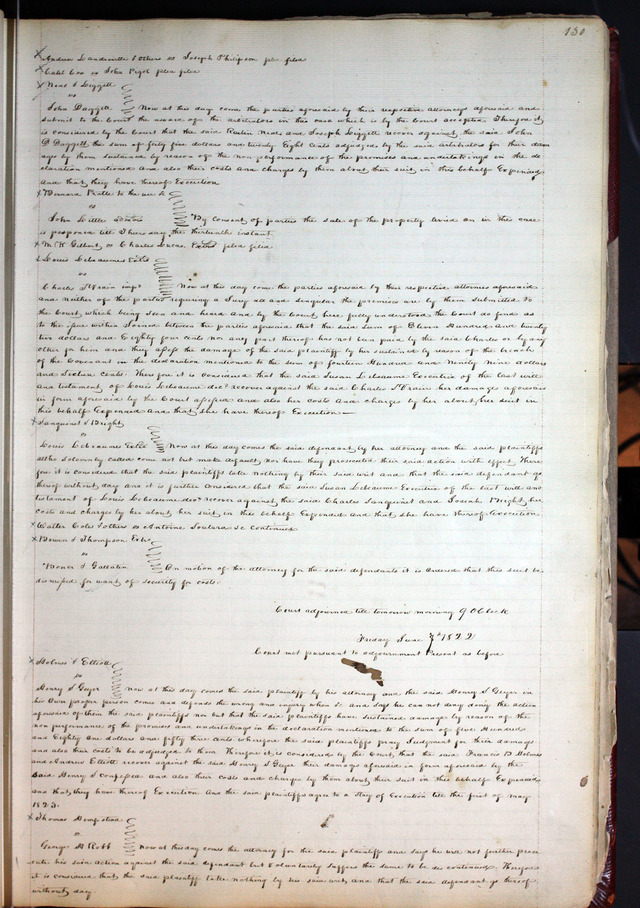 130
Andrew Landreville & others vs Joseph Philipson plea filed
Caleb Cox vs John Pigot pleas filed
Neal & Liggett
vs
John Daggett Now at this day come the parties aforesaid by their respective attorneys aforesaid and
submit to the Court the award of the arbitrators in this case which is by the Court accepted Therefore it
is considered by the Court that the said Reuben Neal and Joseph Liggett recover against the said John
D Daggett the sum of forty five dollars and twenty Eight cents adjudged by the said arbitrators for their dam
ages by them sustained by reason of the non performance of the promises and undertakings in the de
claration mentioned and also their costs and charges by them about their suit in this behalf Expended
And that they have thereof Execution
Bernard Pratte to the use &c
vs
John Little By Consent of parties the sale of the property levied on in this case
is postponed till Thursday the thirtieth instant
M. K Gilbert vs Charles Lucas plea filed
Louis Lebeaumes
vs
Charles St Vrain impd Now at this day come the parties aforesaid by their respective attornies aforesaid
and neither of the parties requiring a Jury all and singular the premises are by them submitted to
the Court, which being seen and heard and by the Court here fully understood the Court do find as
to the issue within Joined between the parties aforesaid that the said sum of Eleven Hundred and twenty
two dollars and Eighty four cents nor any part thereof has not been paid by the said Charles or by any
other for him and they assess the damage of the said plaintiff by her sustained by reason of the breach
of the Covenant in the declaration mentioned to the sum of fourteen Hundred and Ninety Nine dollars
and Sixteen Cents. Therefore it is considered that the said Susan Lebeaume Executrix of the last will
and testament of Louis Lebeaume decd recover against the said Charles St Vrain her damages aforesaid
in form aforesaid by the Court assessed and also her costs and charges by her about her suit in
this behalf Expended and that she have thereof Execution
Sanguinet & Bright
vs
Louis Lebeaumes Now at this day comes the said defendant by her attorney and the said plaintiffs
altho Solemnly called come not but make default, nor have they prosecuted their said action with effect There
fore it is considered that the said plaintiffs take nothing by their said writ and that the said defendant go
thereof without day and it is further considered that the said Susan Lebeaume Executrix of the last will and
testament of Louis Lebeaume decd recover against the said Charles Sanguinet and Josiah Bright her
costs and charges by her about her suit in this behalf Expended and that she have thereof Execution
Walter Coles & others vs Antoine Soulard &c continued
Brown & Thompson
vs
& Gallatin On motion of the attorney for the said defendants it is Ordered that this suit be
dismissed for want of security for costs
Court adjourned till tomorrow morning 9 OClock
Friday June 7th 1822
Court met pursuant to adjournment Present as before
Holmes & Elliott
vs
Henry S Geyer Now at this day comes the said plaintiffs by his attorney and the said Henry S Geyer in
his Own proper person comes and defends the wrong and injury when &c and says he can not deny doing the action
aforesaid of them the said plaintiffs nor but that the said plaintiffs have sustained damage by reason of the
non performance of the promises and undertakings in the declaration mentioned to the sum of five Hundred
and Eighty One dollars and fifty three cents wherefore the said plaintiffs pray Judgment for their damage
and also their costs to be adjudged to them Therefore it is considered by the Court, that the said Francis D Holmes
and Andrew Elliott recover against the said Henry S Geyer their damages aforesaid in form aforesaid by the
said Henry S confessed and also their costs and charges by them about their suit in this behalf Expended
and that, they have thereof Execution And the said plaintiffs agree to a stay of Execution till the first of May
1823
Thomas Hempstead
vs
George H Robb Now at this day comes the attorney for the said plaintiff and says he will not further prose
cute his said action against the said defendant but Voluntarily suffers the same to be dis continued Therefore
it is considered that the said plaintiff take nothing by his said writ and that the said defendant go thereof
without day